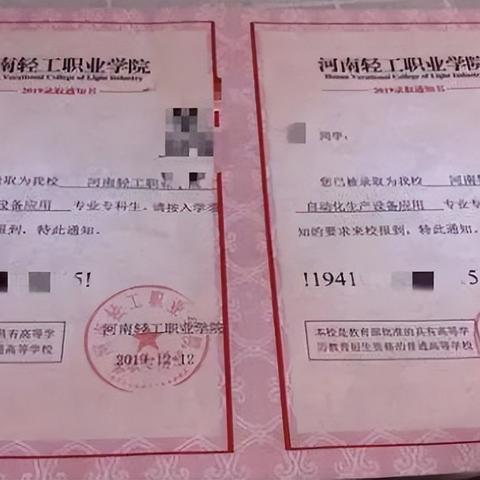 南轻工职业学院
Vocational College of Light Industry
2019录取通知书
录取为我校 河南轻工职业
设备应用 专业专科生。请按入学
报到。特此通知。
5!
河南轻工职业学院
2019-12-12
具有高等学
通高等学校
河南轻工职业学院
Henan Vocational College of Light Industry
2019录取通知书
同学:
您已被录取为我校 河南
自动化生产设备应用 专业专
知的要求来校报到。特此通知。
!1941 5
本校是教育部批准的具有高等学
历教育招生资格的普通高等学校